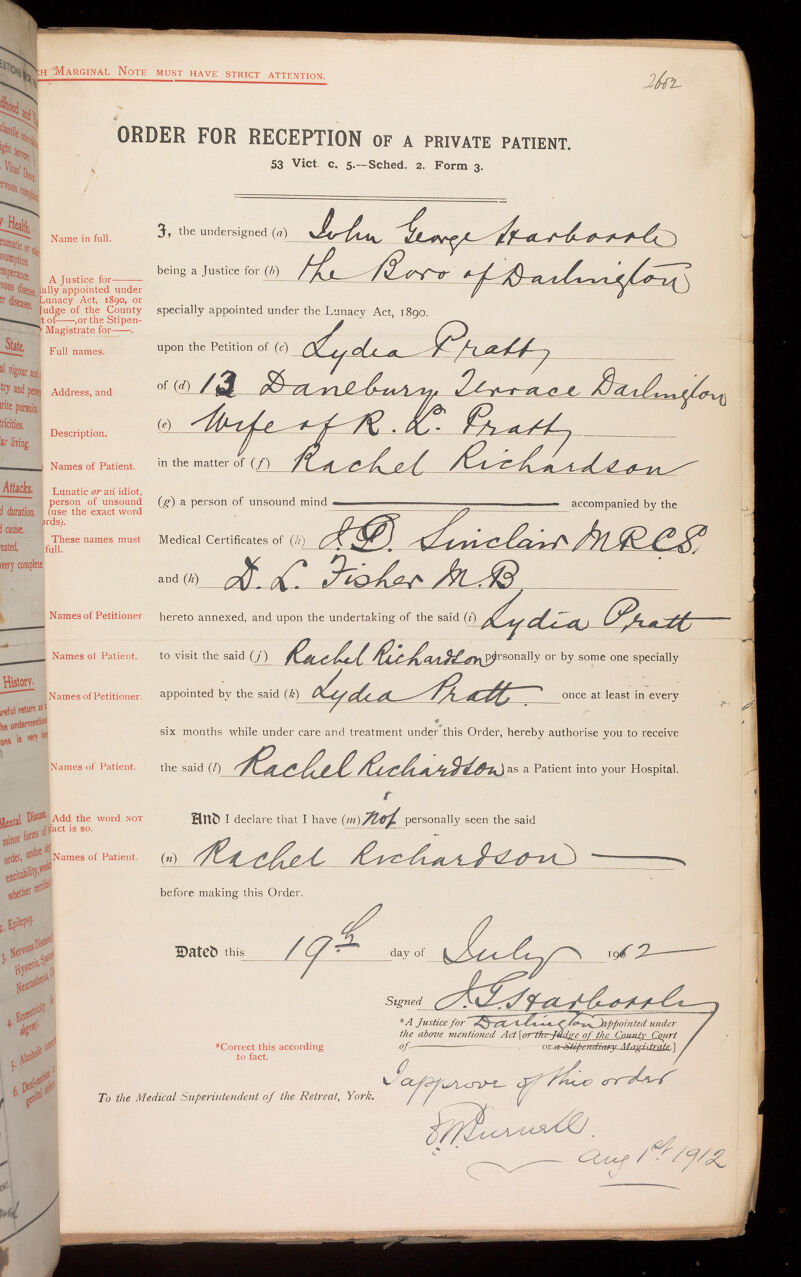 MARGINAL NOTE MUST HAVE STRICT ATTENTION.
2602
ORDER FOR RECEPTION OF A PRIVATE PATIENT.
53 Vict. c. 5.—Sched. 2. Form 3.
Name in full.
I, the undersigned (a) John George Harbottle
A Justice for——
ially appointed under
Lunacy Act, 1890, or
Judge of the County
t of——, or the Stipen-
Magistrate for——.
being a Justice for (b) the Boro of Darlington
specially appointed under the Lunacy Act, 1890.
Full names.
upon the Petition of (c) Lydia Pratt
Address, and
of (d) 13 Danebury Terrace Darlington
Description.
(e) Wife of R. L. Pratt
Names of Patient.
in the matter of (f) Rachel Richardson
Lunatic or an idiot,
person of unsound
(use the exact word
ords).
(g) a person of unsound mind —— accompanied by the
These names must
full.
Medical Certificates of (h) J. D. Sinclair M.R.C.S.
and (h) D. L. Fisher M.B
Names of Petitioner
hereto annexed, and upon the undertaking of the said (i) Lydia Pratt
Names of Patient.
to visit the said (j) Rachel Richardson personally or by some one specially
Names of Petitioner.
appointed by the said (k) Lydia Pratt. once at least in every
six months while under care and treatment under this Order, hereby authorise you to receive
Names of Patient.
the said (l) Rachel Richardson as a Patient into your Hospital.
Add the word NOT
fact is so.
And I declare that I have (m) not personally seen the said
Names of Patient.
(n) Rachel Richardson ——
before making this Order.
Dated this 19th day of July 1912
Signed J. G. Harbottle
*A Justice for Darlington appointed under
the above mentioned Act [or the Judge of the County Court
of —— or a Stipendiary Magistrate.]
*Correct this according
to fact.
To the Medical Superintendent of the Retreat, York.
I approve of this order
Aug 1st 1912
State.
Attacks.
duration.
cause.
History.
Epilepsy.